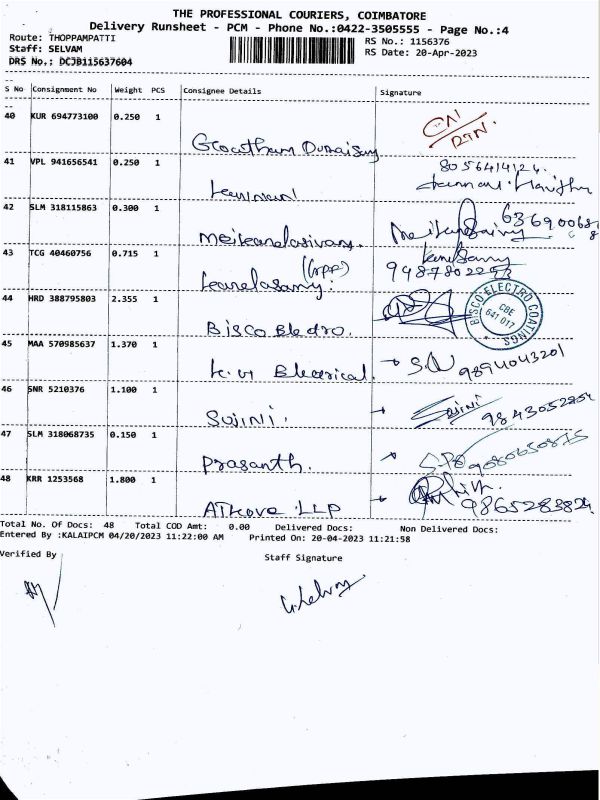 THE PROFESSIONAL COURIERS, COIMBATORE
Delivery Runsheet - PCM - Phone No.:0422-3505555 - Page No.:4
Route: THOPPAMPATTI
Staff: SELVAM
DRS No.: DCJB115637604
RS No.: 1156376
RS Date: 20-Apr-2023
S No Consignment No Weight PCS Consignee Details Signature
40 KUR 694773100 0.250 1
41 VPL 941656541 0.250 1 8056414124
42 SLM 318115863 0.300 1
43 TCG 40460756 0.715 1 9487802293
44 HRD 388795803 2.355 1 Bisco Electro. BISCO ELECTRO COATINGS CBE 641 017
45 MAA 570985637 1.370 1 Electrical. 9894043201
46 SNR 5210376 1.100 1 Sujini. Sujini 9843052954
47 SLM 318068735 0.150 1 Prasanth. 9080650875
48 KRR 1253568 1.800 1 LLP 9865283824
Total No. Of Docs: 48 Total COD Amt: 0.00 Delivered Docs: Non Delivered Docs:
Entered By :KALAIPCM 04/20/2023 11:22:00 AM Printed On: 20-04-2023 11:21:58
Verified By Staff Signature